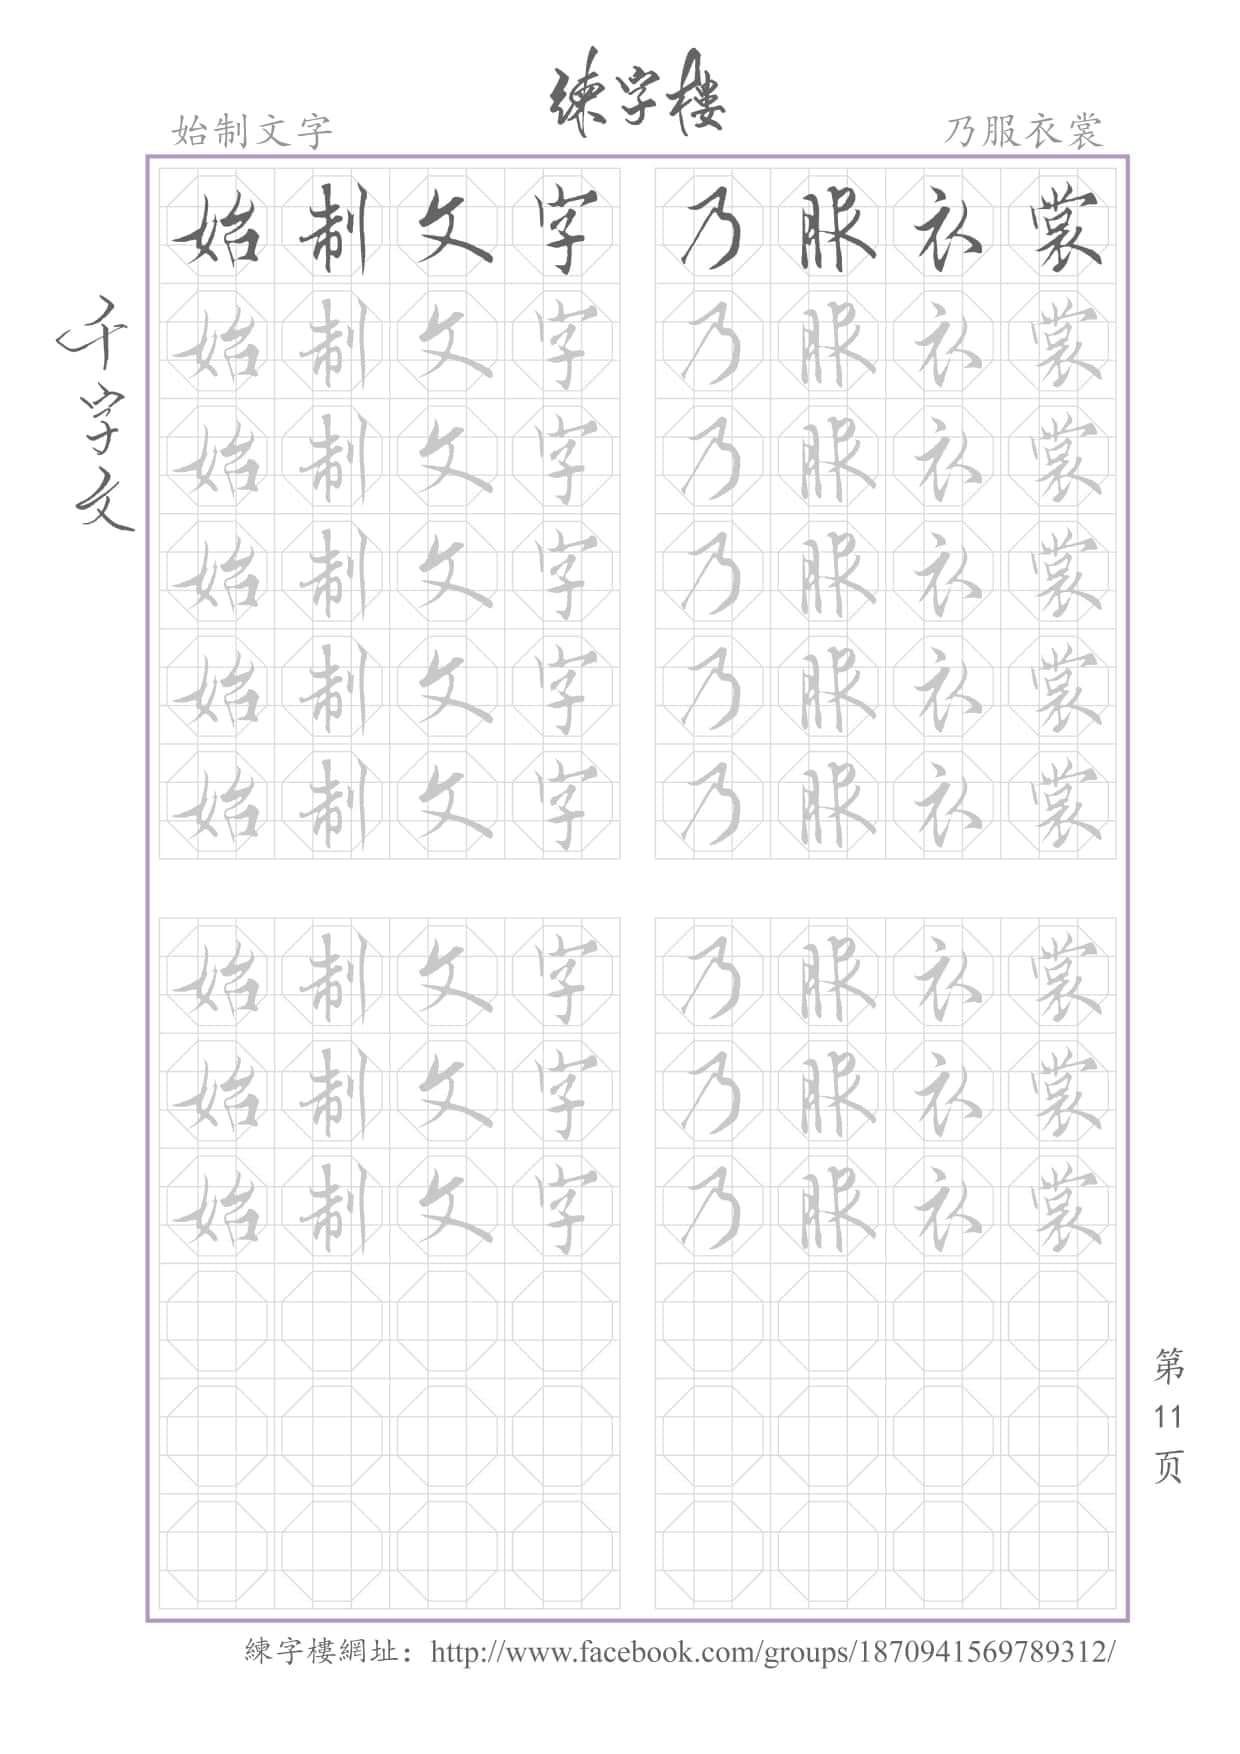 練字樓
始制文字 乃服衣裳
千字文
始制文字 乃服衣裳
始制文字 乃服衣裳
始制文字 乃服衣裳
始制文字 乃服衣裳
始制文字 乃服衣裳
始制文字 乃服衣裳
始制文字 乃服衣裳
始制文字 乃服衣裳
始制文字 乃服衣裳
第11页
練字樓網址：http://www.facebook.com/groups/1870941569789312/